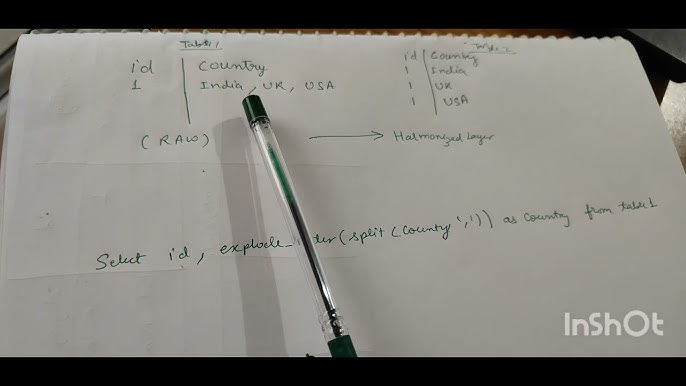 Table 1
id Country
1 India, UK, USA
(RAW)
Table 2
id Country
1 India
1 UK
1 USA
Halmonized Layer
Select id, (split (County ',')) as Country from table1
InShOt